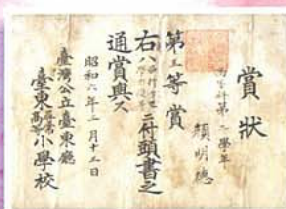 賞狀
第二學年
顏明德
第三等賞
右ハ
ニ付頭書之
通賞與ス
昭和六年三月十三日
臺灣公立臺東廳
臺東尋常高等小學校